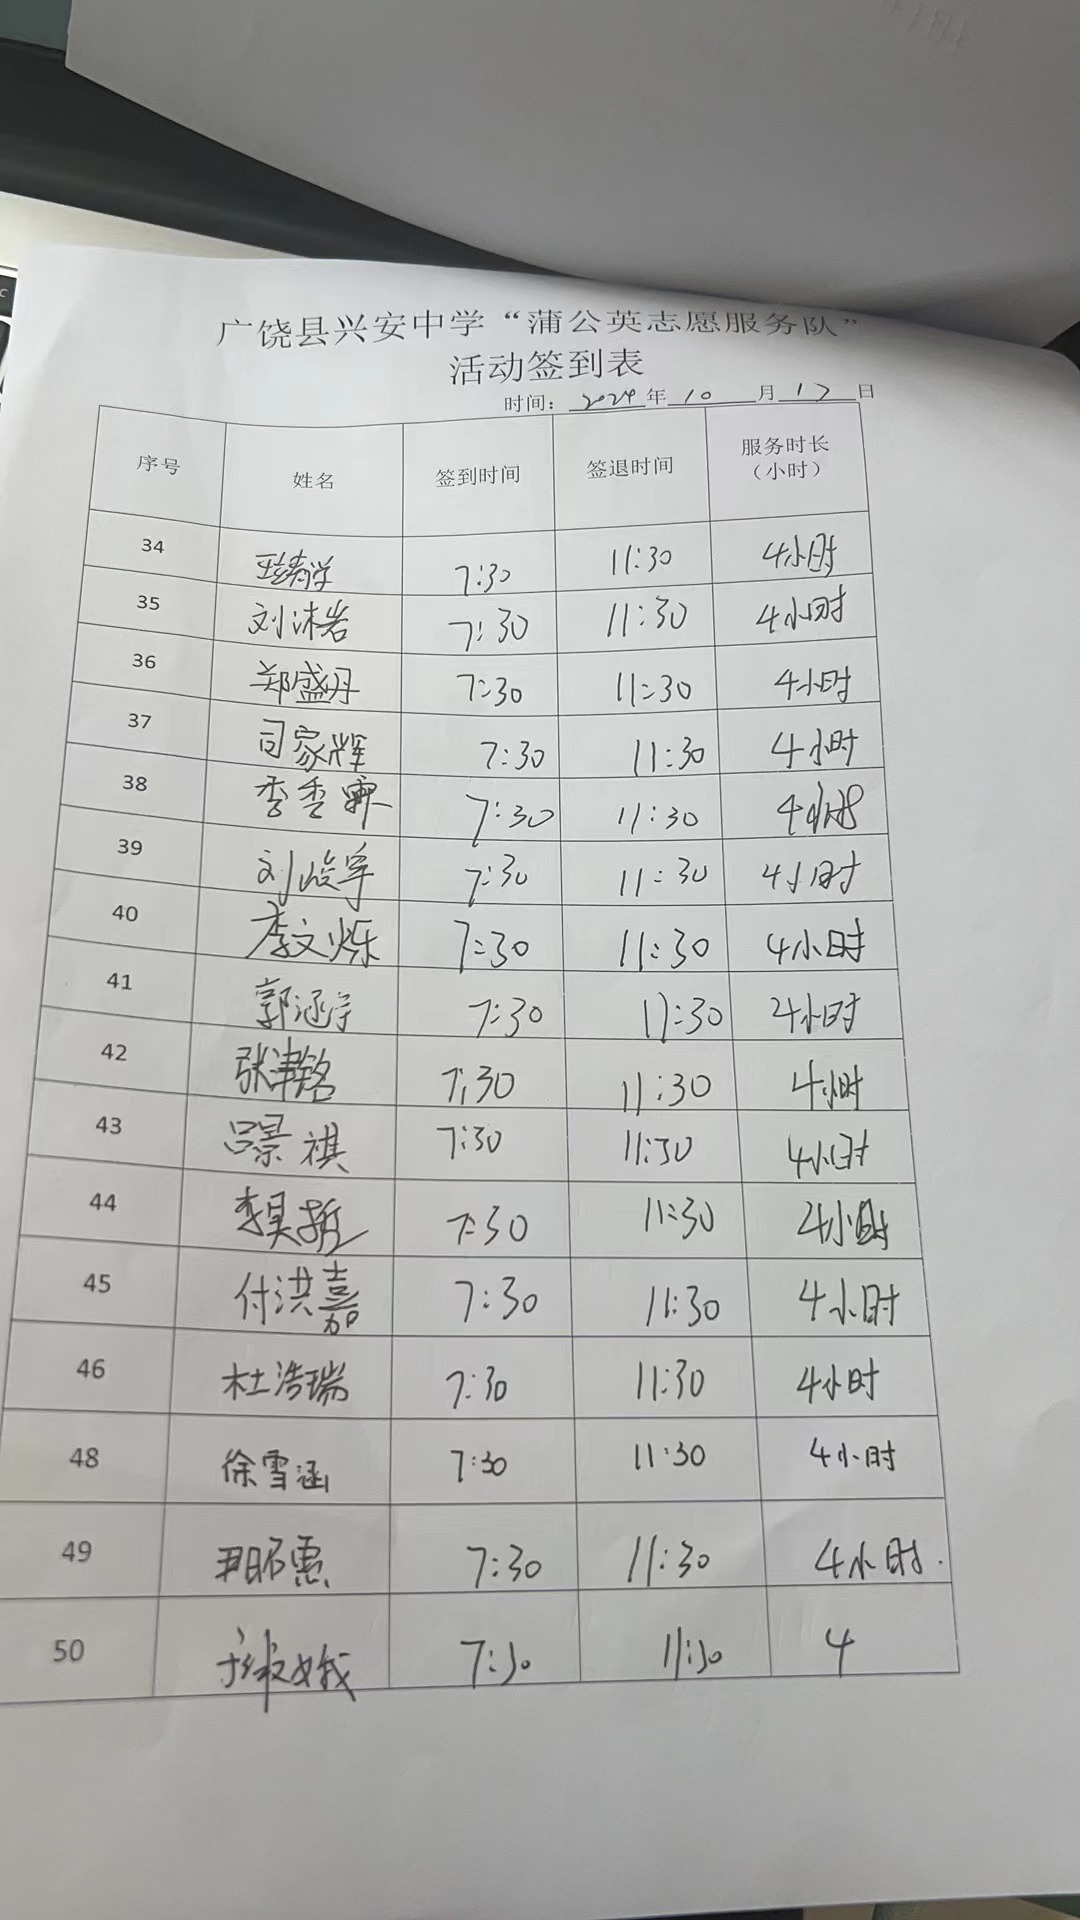 广饶县兴安中学“蒲公英志愿服务队”
活动签到表
时间：2024年10月17日
序号 姓名 签到时间 签退时间 服务时长（小时）
34 7:30 11:30 4小时
35 刘沐岩 7:30 11:30 4小时
36 郑盛丹 7:30 11:30 4小时
37 司家辉 7:30 11:30 4小时
38 李秀霖 7:30 11:30 4小时
39 刘峻宇 7:30 11:30 4小时
40 李文烁 7:30 11:30 4小时
41 郭涵宇 7:30 11:30 4小时
42 张津铭 7:30 11:30 4小时
43 吕景祺 7:30 11:30 4小时
44 李昊哲 7:30 11:30 4小时
45 付洪嘉 7:30 11:30 4小时
46 杜浩瑞 7:30 11:30 4小时
48 徐雪涵 7:30 11:30 4小时
49 尹昭惠 7:30 11:30 4小时.
50 7:30 11:30 4